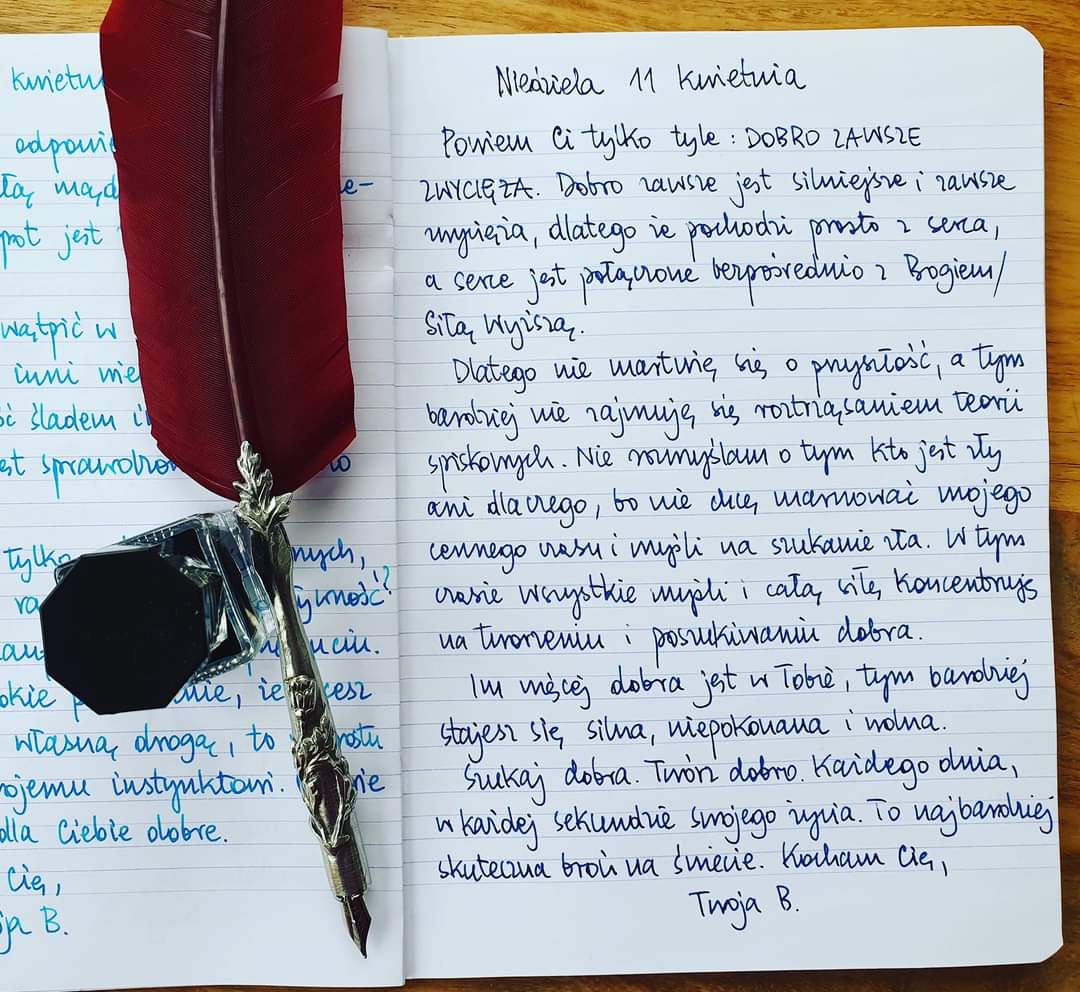 kwietn
odpowie
łą mąd
e-
pot jest
wątpić w
inni nie
ść śladem i
st sprawdzon
o
tylko
nych,
ra
tywność?
au
uciu.
okie p
nie, że
cesz
własną drogą, to
rostu
ojemu instynktowi.
nie
dla Ciebie dobre.
Cię,
ja B.
Niedziela 11 kwietnia
Powiem Ci tylko tyle: DOBRO ZAWSZE
ZWYCIĘŻA. Dobro zawsze jest silniejsze i zawsze
zwycięża, dlatego że pochodzi prosto z serca,
a serce jest połączone bezpośrednio z Bogiem/
Siłą Wyższą.
Dlatego nie martwię się o przyszłość, a tym
bardziej nie zajmuję się roztrząsaniem teorii
spiskowych. Nie rozmyślam o tym kto jest zły
ani dlaczego, bo nie chcę marnować mojego
cennego czasu i myśli na szukanie zła. W tym
czasie wszystkie myśli i całą siłę koncentruję
na tworzeniu i poszukiwaniu dobra.
Im więcej dobra jest w Tobie, tym bardziej
stajesz się silna, niepokonana i wolna.
Szukaj dobra. Twórz dobro. Każdego dnia,
w każdej sekundzie swojego życia. To najbardziej
skuteczna broń na świecie. Kocham Cię,
Twoja B.